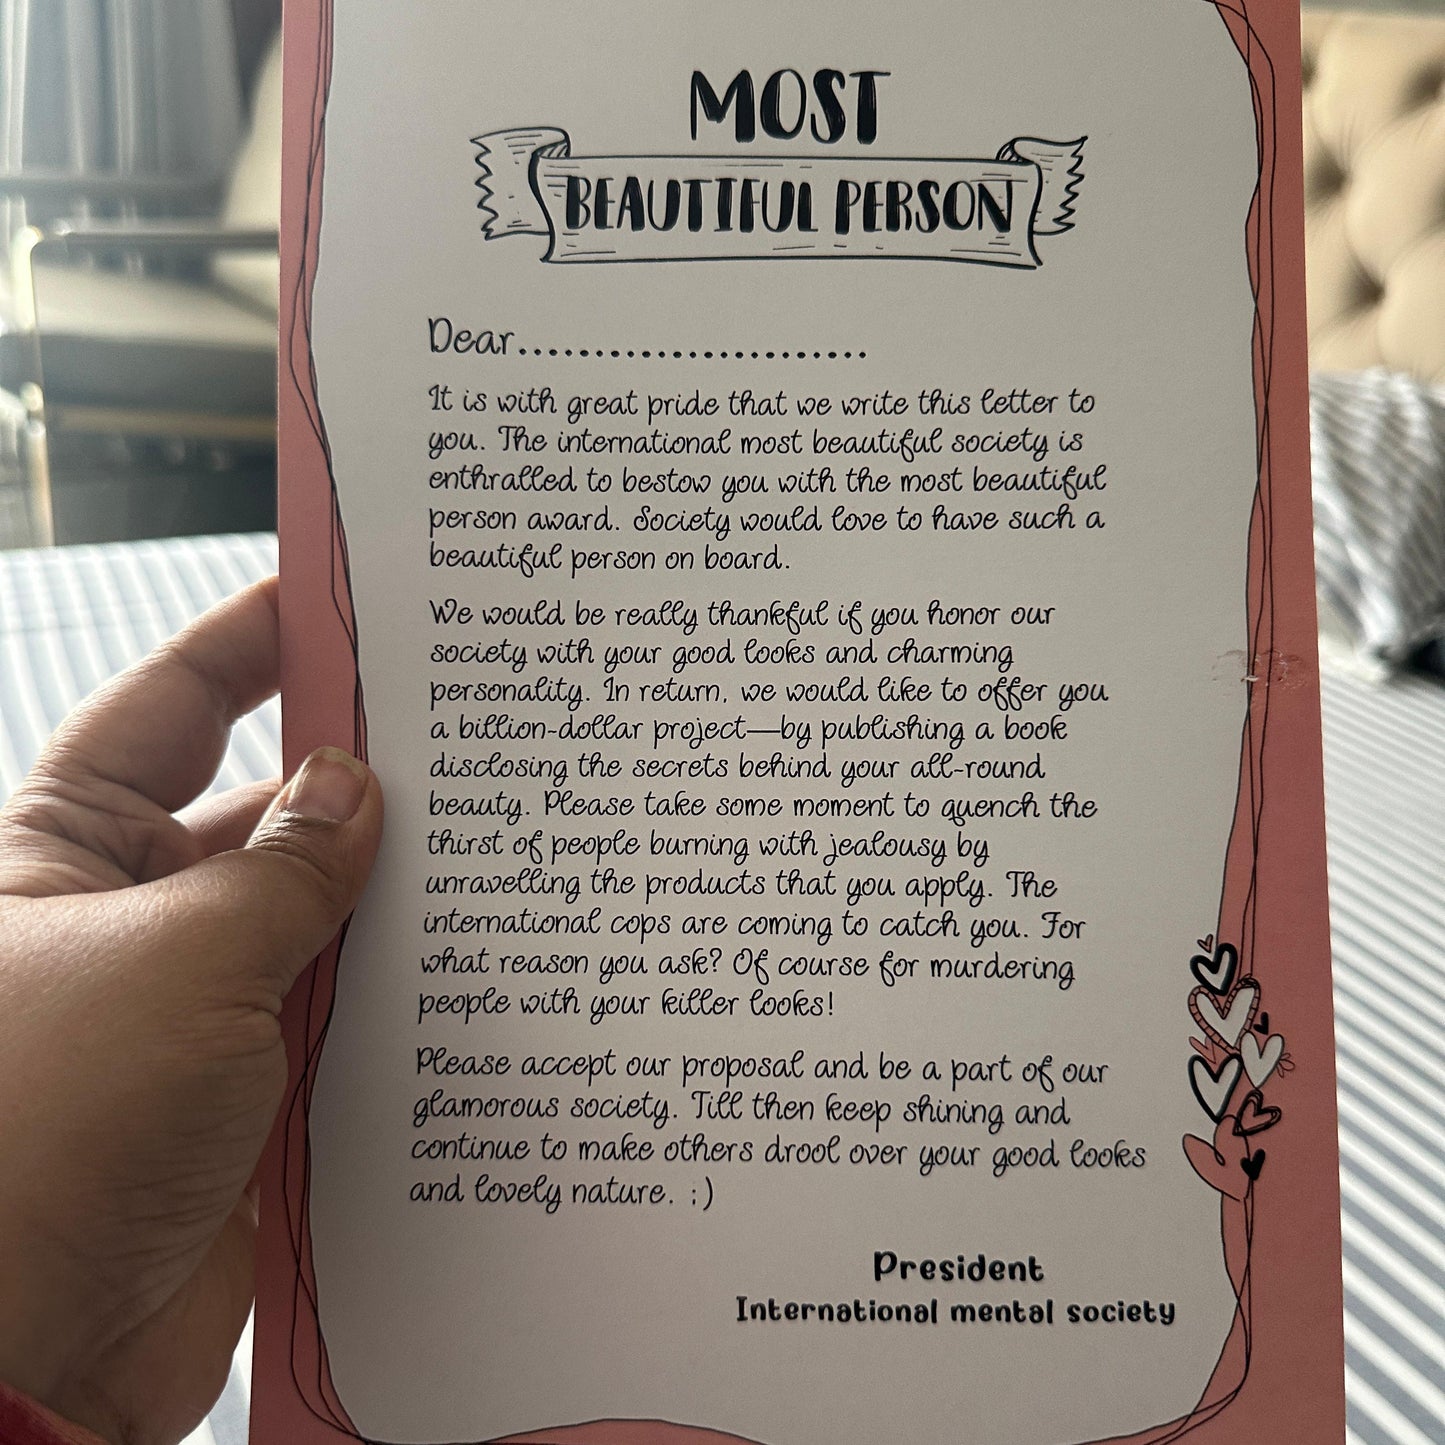 MOST
BEAUTIFUL PERSON
Dear.......................
It is with great pride that we write this letter to
you. The international most beautiful society is
enthralled to bestow you with the most beautiful
person award. Society would love to have such a
beautiful person on board.
We would be really thankful if you honor our
society with your good looks and charming
personality. In return, we would like to offer you
a billion-dollar project—by publishing a book
disclosing the secrets behind your all-round
beauty. Please take some moment to quench the
thirst of people burning with jealousy by
unravelling the products that you apply. The
international cops are coming to catch you. For
what reason you ask? Of course for murdering
people with your killer looks!
Please accept our proposal and be a part of our
glamorous society. Till then keep shining and
continue to make others drool over your good looks
and lovely nature. :)
President
International mental society